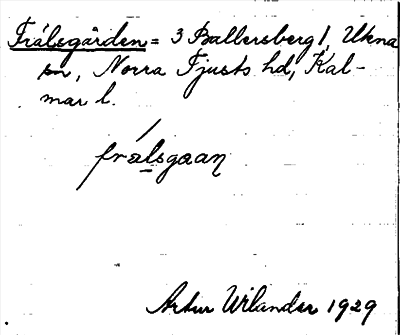 Frälsgården = 3 Ballersberg 1, Ukna
sn, Norra Tjusts hd, Kal-
mar l.
frálsgaaŋ
Artur Wilander 1929